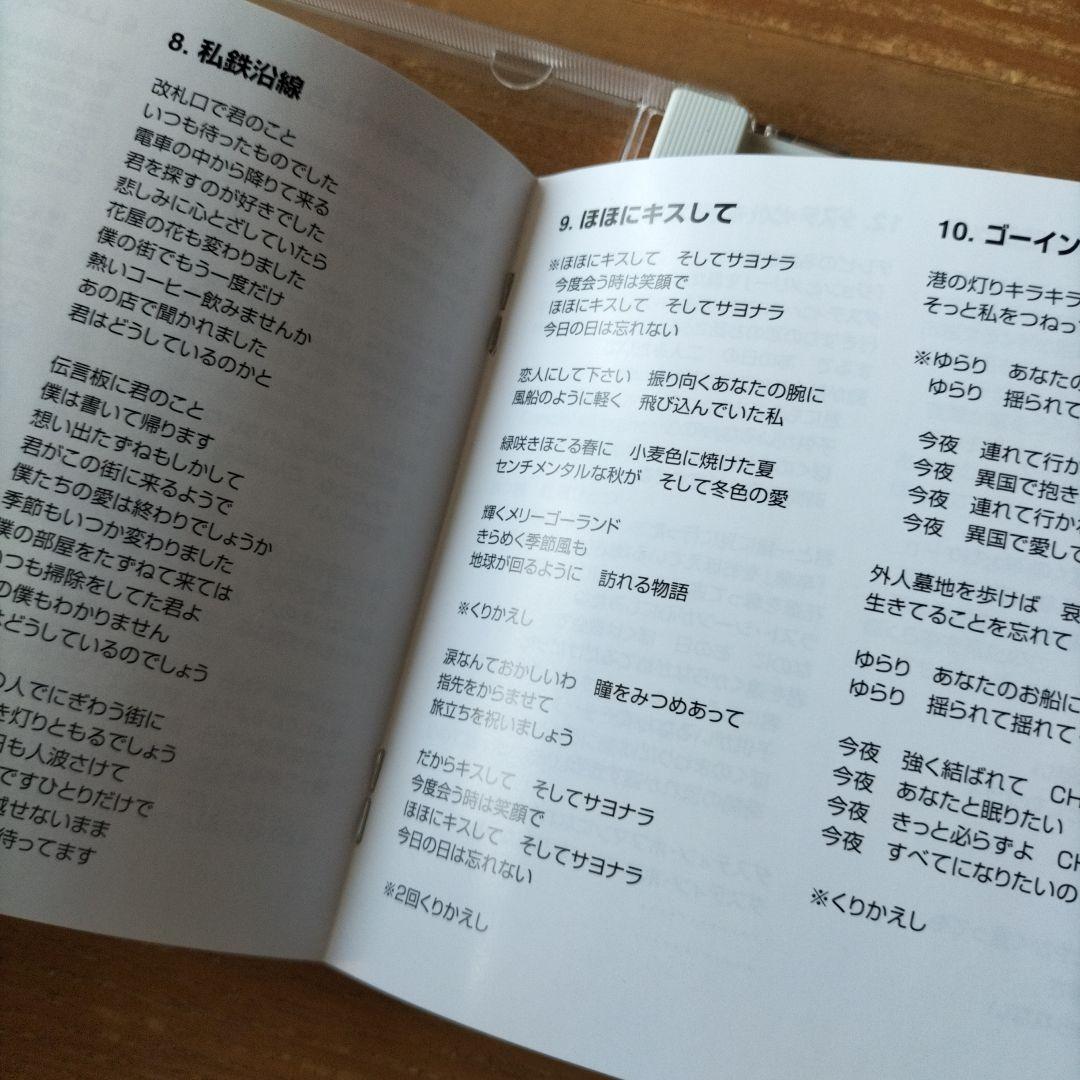 8. 私鉄沿線
改札口で君のこと
いつも待ったものでした
電車の中から降りて来る
君を探すのが好きでした
悲しみに心とざしていたら
花屋の花も変わりました
僕の街でもう一度だけ
熱いコーヒー飲みませんか
あの店で聞かれました
君はどうしているのかと
伝言板に君のこと
僕は書いて帰ります
想い出たずねもしかして
君がこの街に来るようで
僕たちの愛は終わりでしょうか
季節もいつか変わりました
僕の部屋をたずねて来ては
つも掃除をしてた君よ
の僕もわかりません
はどうしているのでしょう
の人でにぎわう街に
き灯りともるでしょう
日も人波さけて
ですひとりだけで
越せないまま
待ってます
9. ほほにキスして
※ほほにキスして そしてサヨナラ
今度会う時は笑顔で
ほほにキスして そしてサヨナラ
今日の日は忘れない
恋人にして下さい 振り向くあなたの腕に
風船のように軽く 飛び込んでいた私
緑咲きほこる春に 小麦色に焼けた夏
センチメンタルな秋が そして冬色の愛
輝くメリーゴーランド
きらめく季節風も
地球が回るように 訪れる物語
※くりかえし
涙なんておかしいわ 瞳をみつめあって
指先をからませて
旅立ちを祝いましょう
だからキスして そしてサヨナラ
今度会う時は笑顔で
ほほにキスして そしてサヨナラ
今日の日は忘れない
※2回くりかえし
10. ゴーイン
港の灯りキラキラ
そっと私をつねっ
※ゆらり あなたの
ゆらり 揺られて
今夜 連れて行か
今夜 異国で抱き
今夜 連れて行か
今夜 異国で愛して
外人墓地を歩けば 哀
生きてることを忘れて
ゆらり あなたのお船に
ゆらり 揺られて揺れて
今夜 強く結ばれて CH
今夜 あなたと眠りたい
今夜 きっと必らずよ CH
今夜 すべてになりたいの
※くりかえし